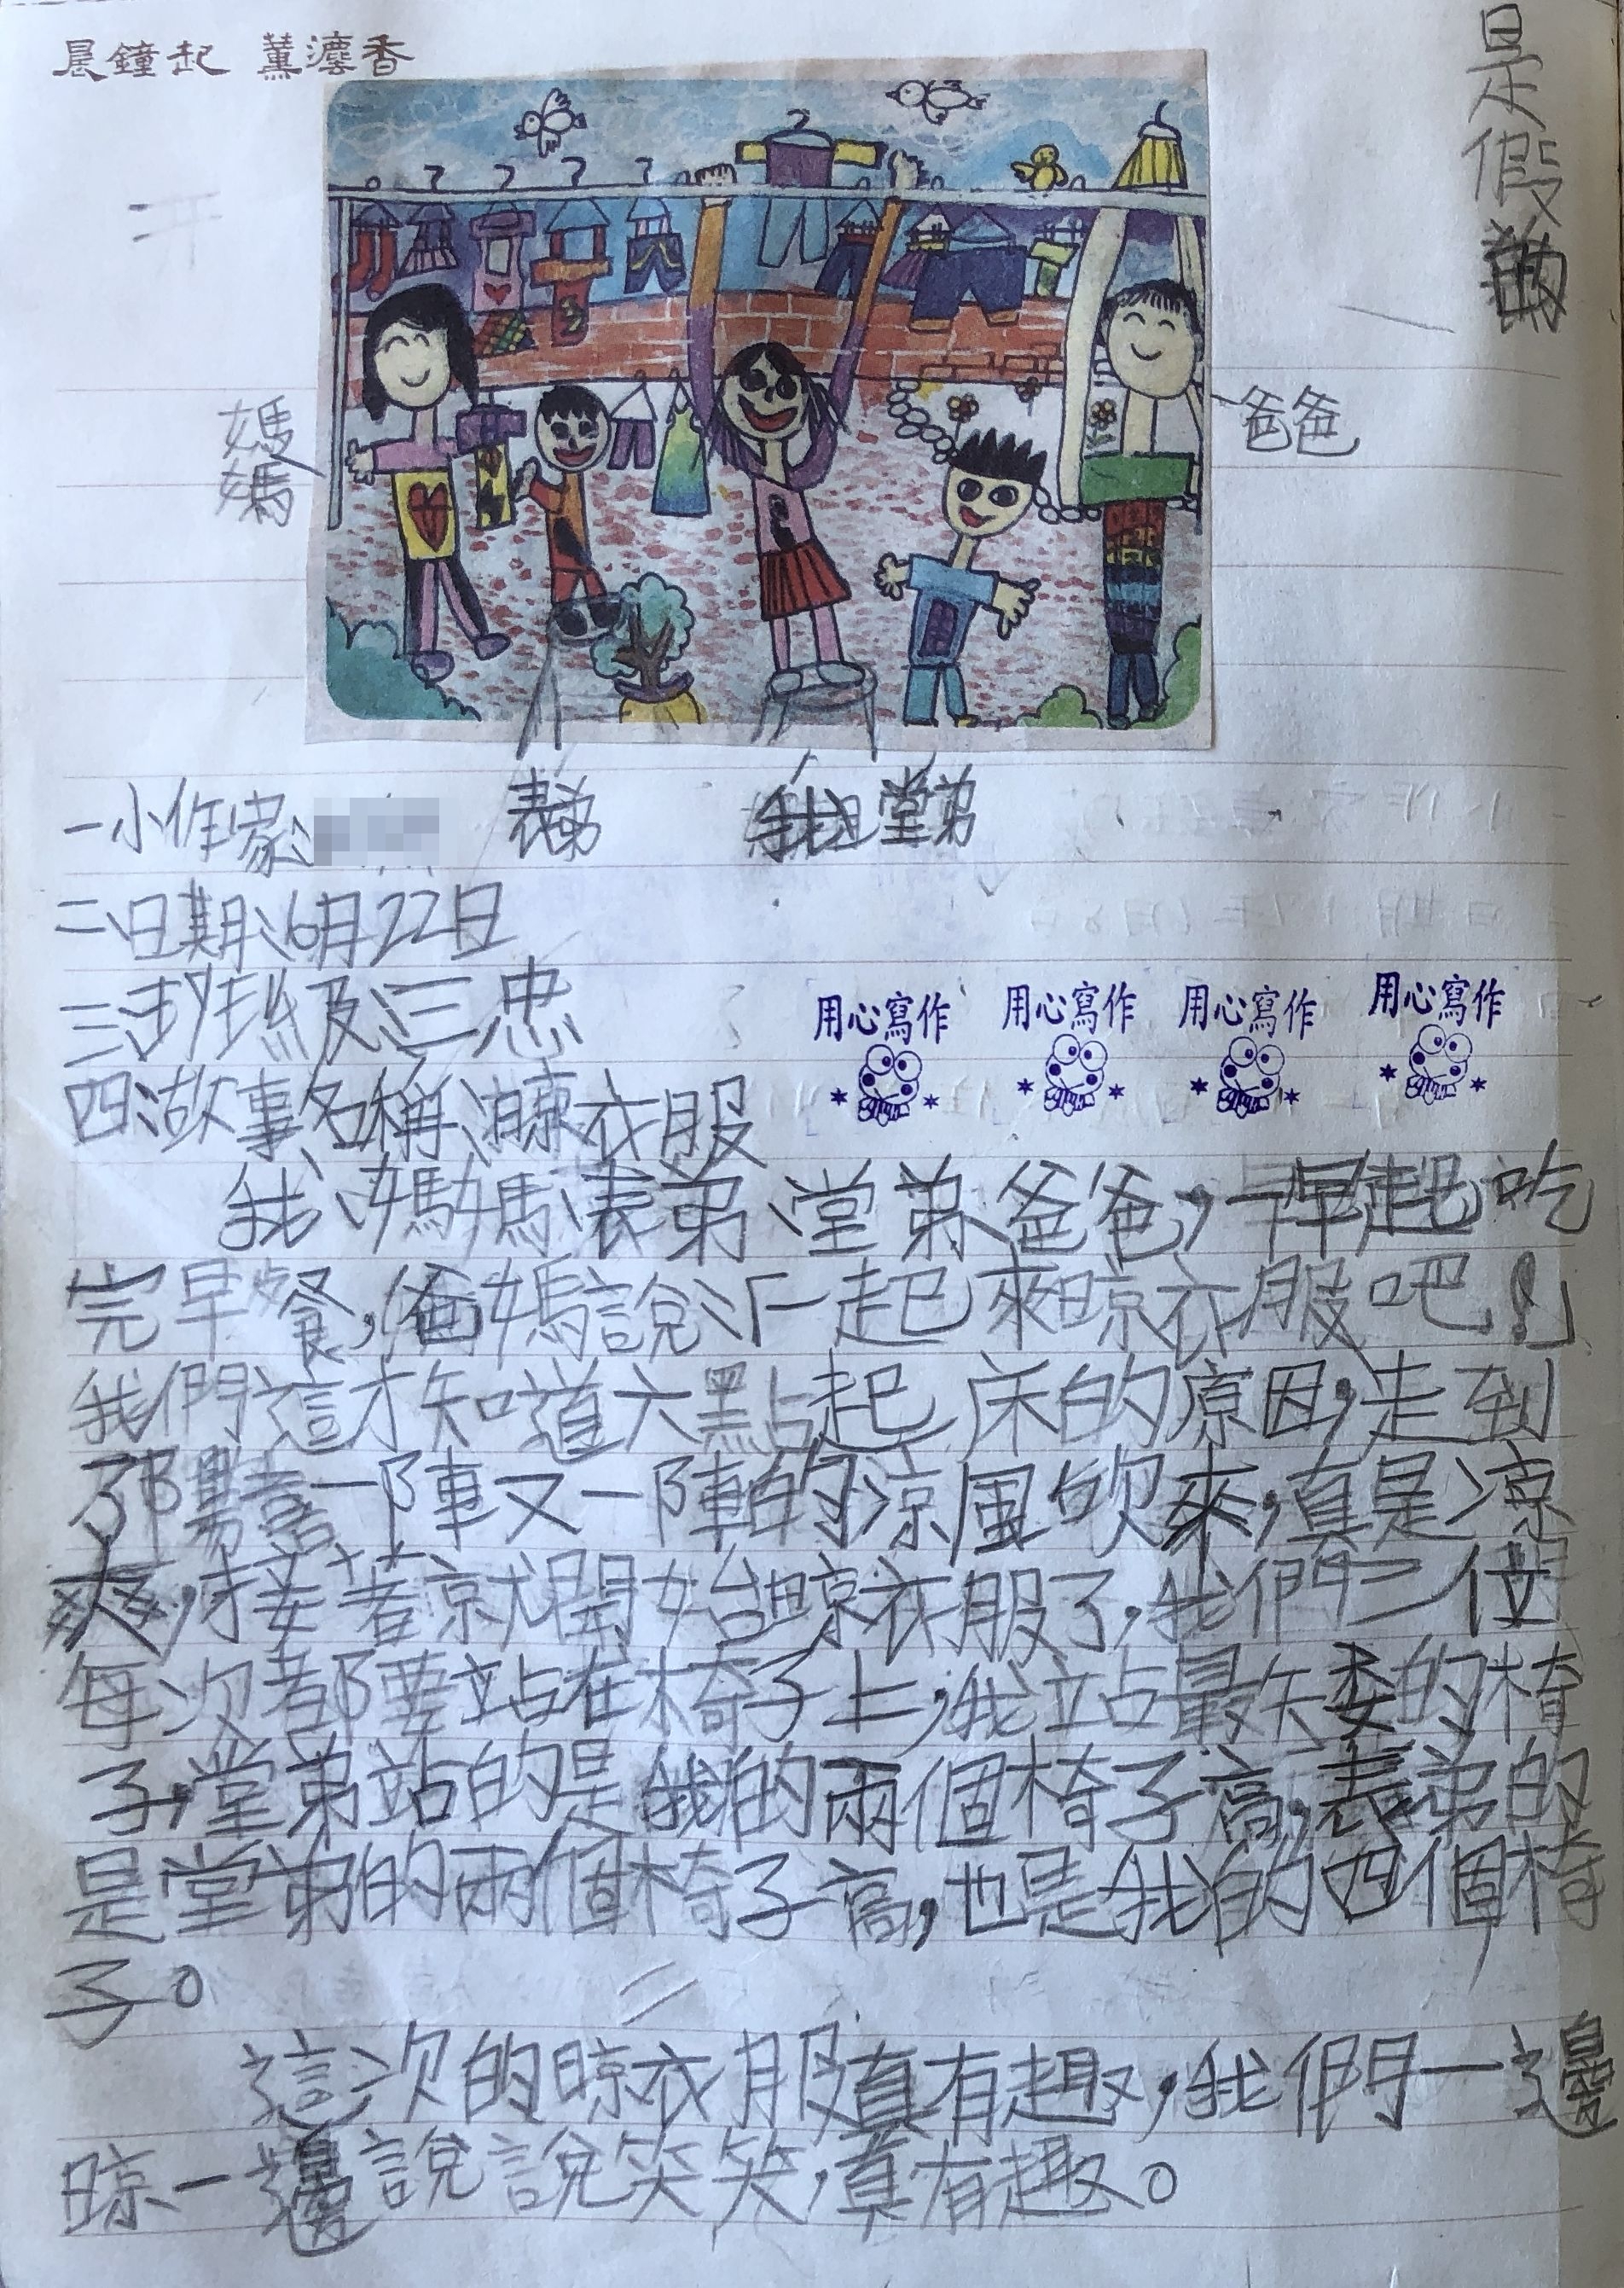 晨鐘起 薰瀌香
是假的
媽媽
爸爸
表弟
我 堂弟
一小作家、
二、日期、6月22日
三、班級、三忠
四、故事名稱、晾衣服
用心寫作
用心寫作
用心寫作
用心寫作
我、媽媽、表弟、堂弟、爸爸，一早起吃
完早餐，爸媽說：「一起來晾衣服吧！」
我們這才知道六點起床的原因，走到
那一陣又一陣的涼風吹來，真是涼
爽，接著就開始晾衣服了，我們三位
每次都要站在椅子上，我站最矮的椅
子，堂弟站的是我的兩個椅子高，表弟的
是堂弟的兩個椅子高，也是我的四個椅
子。
這次的晾衣服真有趣，我們一邊
晾一邊說說笑笑，真有趣。